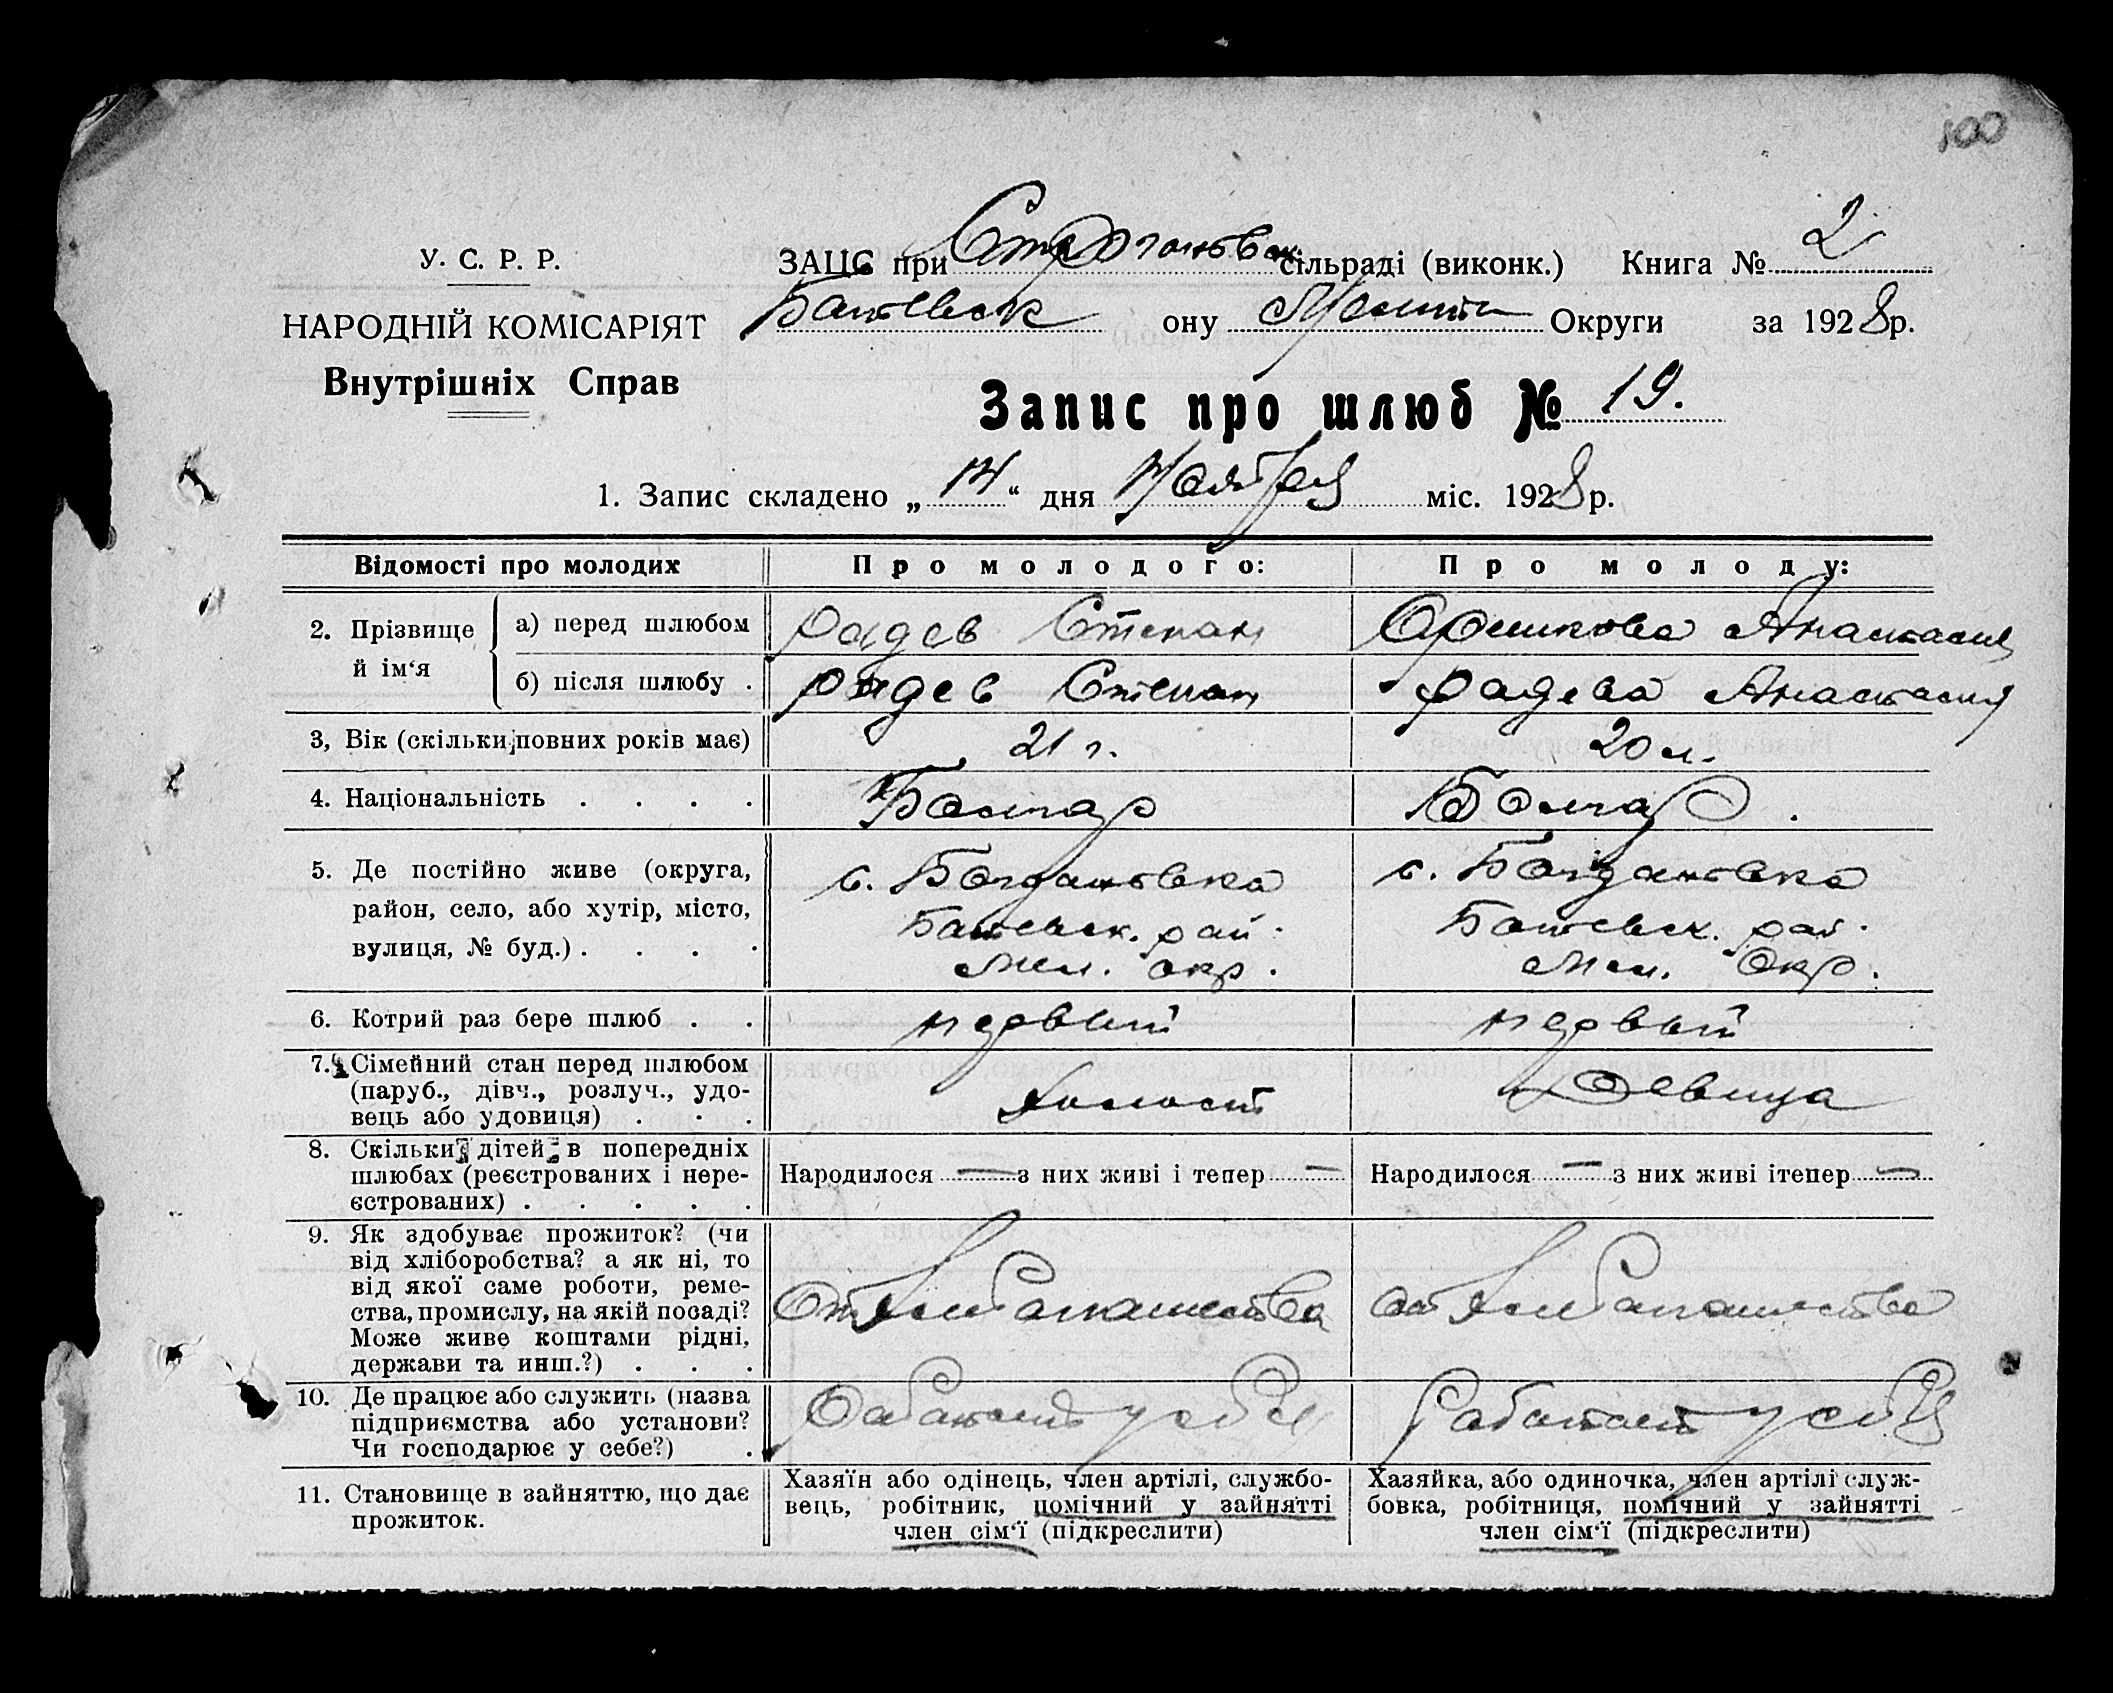 100
У. С. Р. Р.
НАРОДНІЙ КОМІСАРІЯТ
Внутрішніх Справ
ЗАЦС при Строгановск. сільраді (виконк.) Книга № 2
Ботевск ону Мелит. Округи за 1928 р.
Запис про шлюб № 19.
1. Запис складено „ 14 “ дня Ноября міс. 1928 р.
Відомості про молодих
Про молодого:
Про молоду:
2. Прізвище й ім‘я
а) перед шлюбом
Радев Степан
Анастасия
б) після шлюбу .
Радев Степан
Радева Анастасия
3, Вік (скільки повних років має)
21 г.
20 л.
4. Національність . . . .
Болгар
Болгар .
5. Де постійно живе (округа,
район, село, або хутір, місто,
вулиця, № буд.) . . . .
с. Богдановка
Ботевск. рай.
Мел. окр.
с. Богдановка
Ботевск. рай.
Мел. Окр.
6. Котрий раз бере шлюб . .
первый
первый
7. Сімейний стан перед шлюбом
(паруб., дівч., розлуч., удо-
вець або удовиця) . . .
Холост
Девица
8. Скільки дітей в попередніх
шлюбах (реєстрованих і нере-
єстрованих) . . . . .
Народилося — з них живі і тепер —
Народилося — з них живі ітепер —
9. Як здобуває прожиток? (чи
від хліборобства? а як ні, то
від якої саме роботи, реме-
ства, промислу, на якій посаді?
Може живе коштами рідні,
держави та инш.?) . . .
От хлебопашества
От хлебопашества
10. Де працює або служить (назва
підприємства або установи?
Чи господарює у себе?) .
Работает у себя
Работает у себя
11. Становище в зайняттю, що дає
прожиток.
Хазяїн або одінець, член артілі, службо-
вець, робітник, помічний у зайнятті
член сім‘ї (підкреслити)
Хазяйка, або одиночка, член артілі служ-
бовка, робітниця, помічний у зайнятті
член сім‘ї (підкреслити)